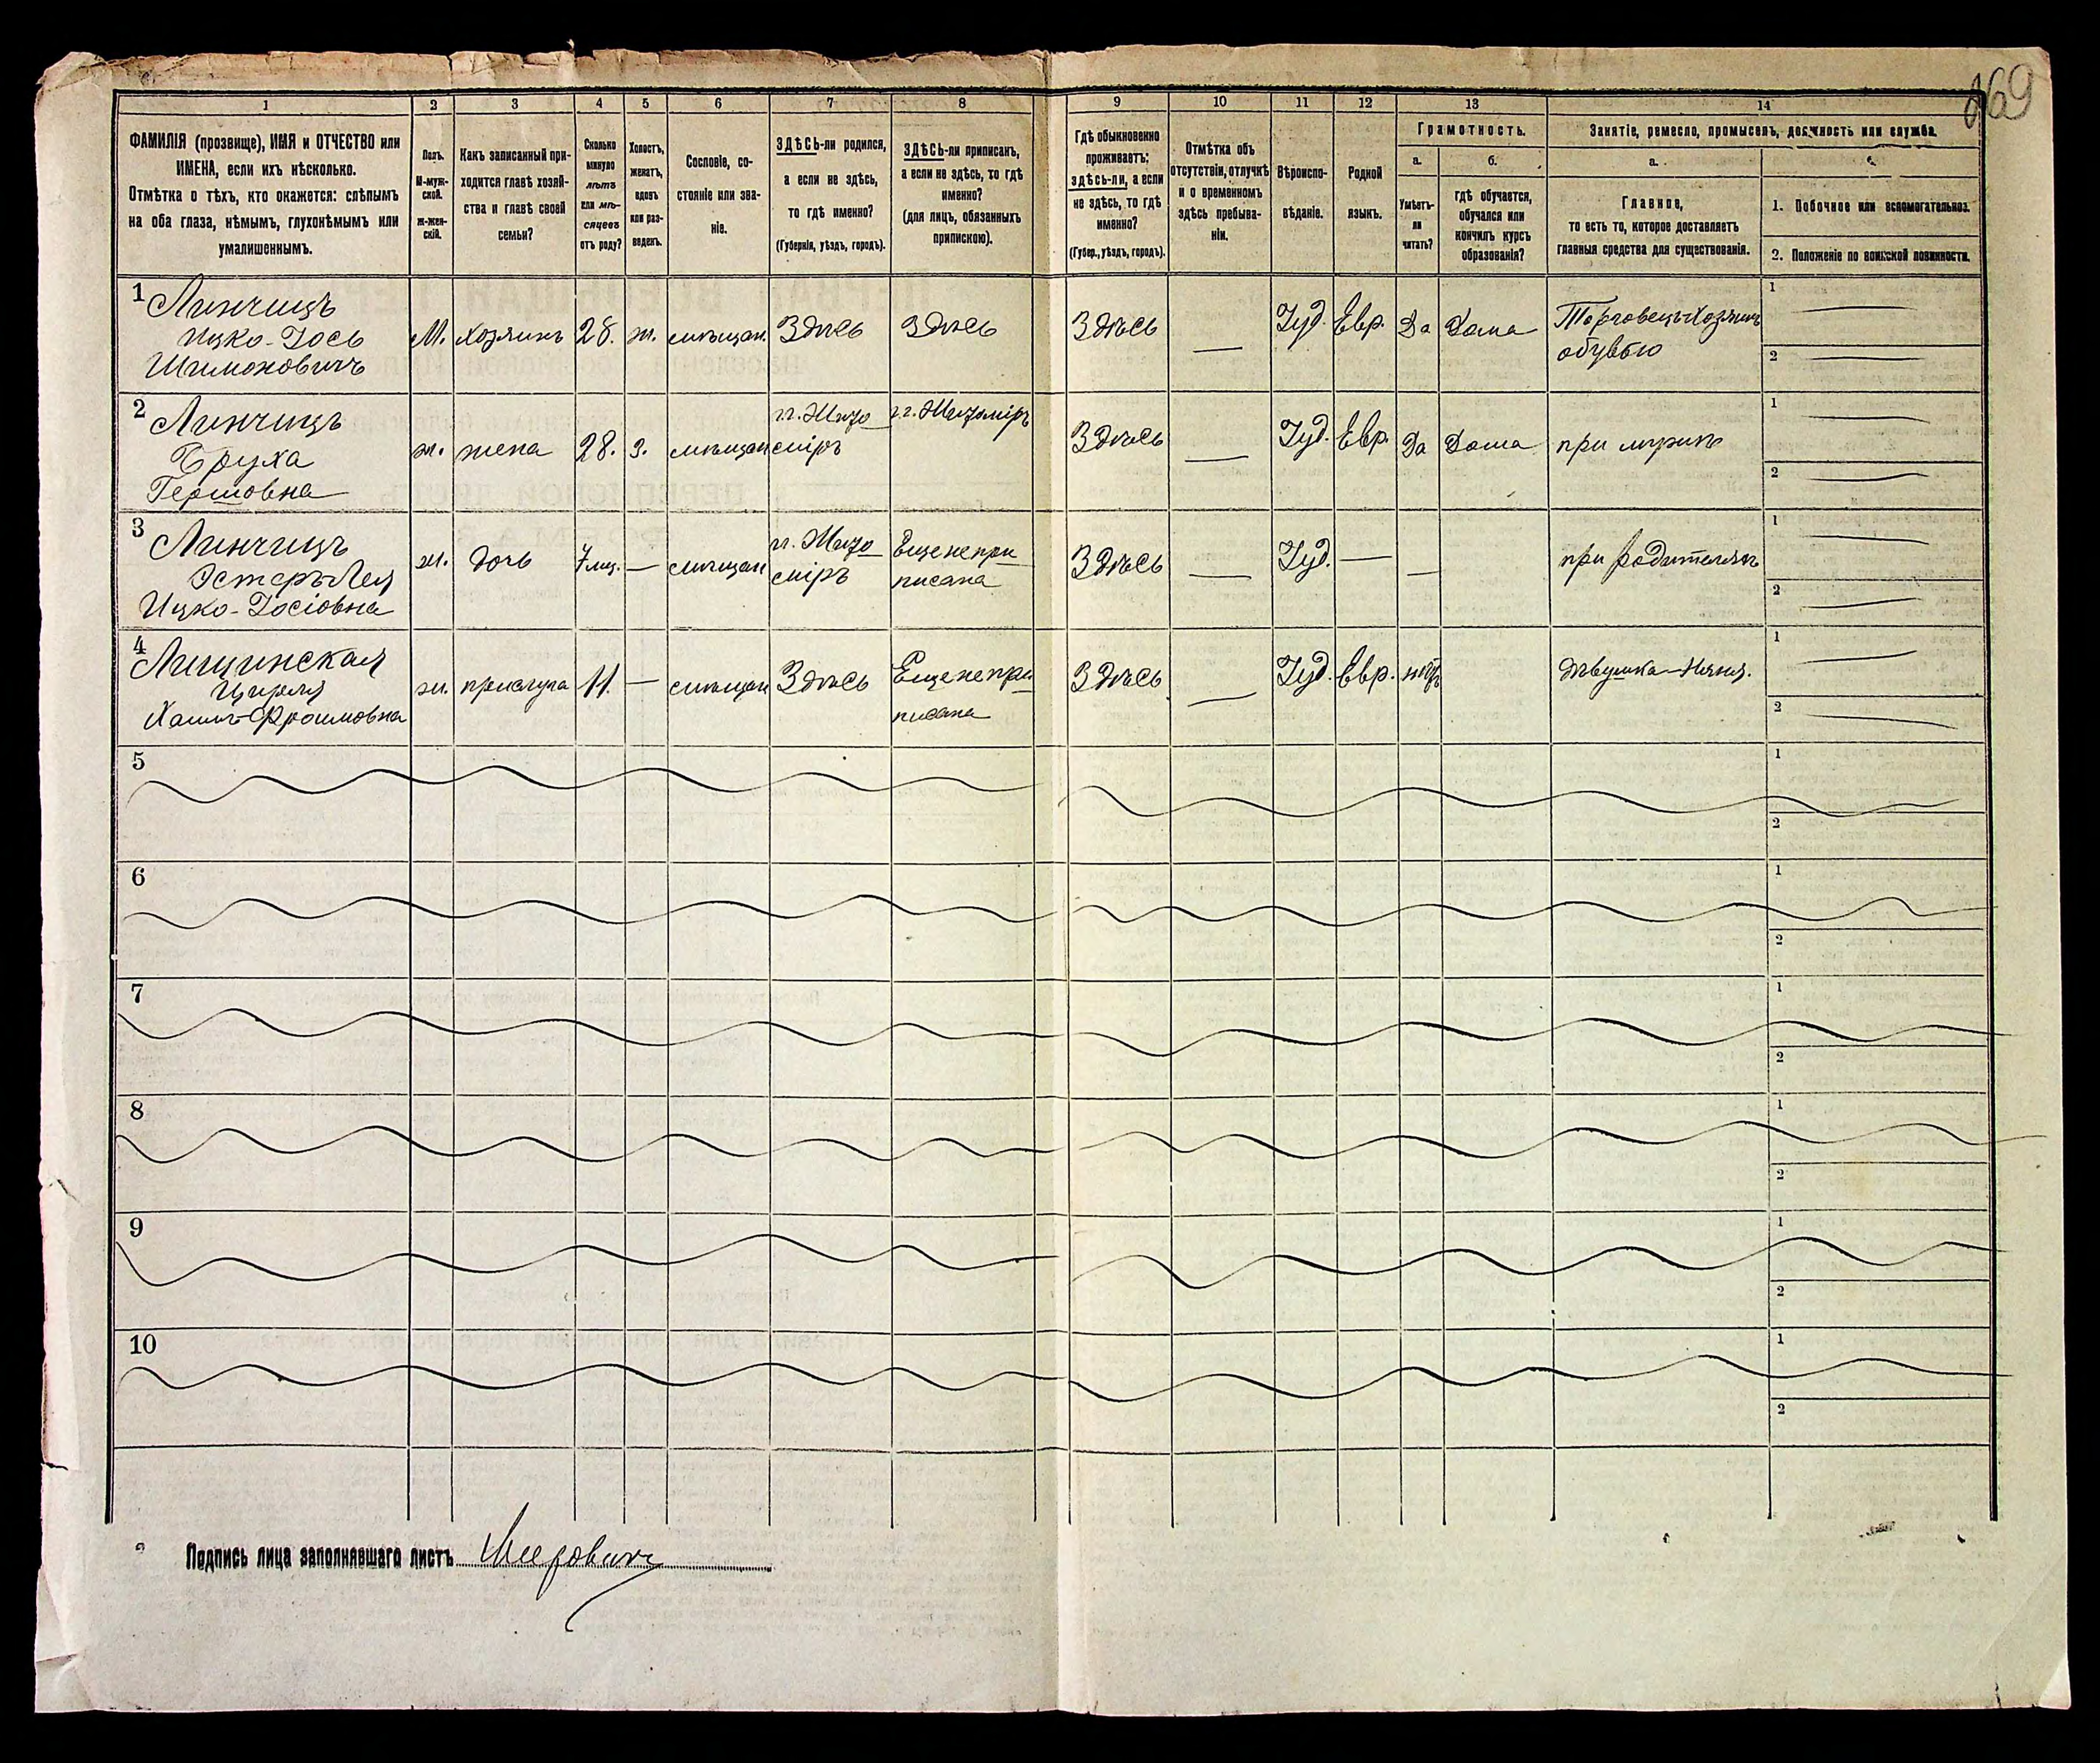 169
1 2 3 4 5 6 7 8 9 10 11 12 13 14
ФАМИЛІЯ (прозвище), ИМЯ и ОТЧЕСТВО или
ИМЕНА, если ихъ нѣсколько.
Отмѣтка о тѣхъ, кто окажется: слѣпымъ
на оба глаза, нѣмымъ, глухонѣмымъ или
умалишеннымъ.
Полъ.
М-муж-
ской.
Ж-жен-
скій.
Какъ записанный при-
ходится главѣ хозяй-
ства и главѣ своей
семьи?
Сколько
минуло
лѣтъ
или мѣ-
сяцевъ
отъ роду?
Холостъ,
женатъ,
вдовъ
или раз-
веденъ.
Сословіе, со-
стояніе или зва-
ніе.
ЗДѢСЬ-ли родился,
а если не здѣсь,
то гдѣ именно?
(Губернія, уѣздъ, городъ).
ЗДѢСЬ-ли приписанъ,
а если не здѣсь, то гдѣ
именно?
(для лицъ, обязанныхъ
припискою).
Гдѣ обыкновенно
проживаетъ:
здѣсь-ли, а если
не здѣсь, то гдѣ
именно?
(Губер., уѣздъ, городъ).
Отмѣтка объ
отсутствіи, отлучкѣ
и о временномъ
здѣсь пребыва-
ніи.
Вѣроиспо-
вѣданіе.
Родной
языкъ.
Грамотность.
а. б.
Умѣетъ-
ли
читать?
гдѣ обучается,
обучался или
кончилъ курсъ
образованія?
Занятіе, ремесло, промыселъ, должность или служба.
а.
Главное,
то есть то, которое доставляетъ
главныя средства для существованія.
1. Побочное или вспомогательное.
2. Положеніе по воинской повинности.
1 Линчицъ
Ицко-Іось
Шимоновичъ
М. хозяинъ 28. ж. мѣщан. Здѣсь Здѣсь Здѣсь — Іуд. Евр. Да Дома
Торговецъ-Хозяинъ
обувью
1
2
2 Линчицъ
Бруха
Гершовна
ж. жена 28. з. мѣщан
г. Жито
міръ
г. Житоміръ
Здѣсь — Іуд. Евр. Да Дома при мужѣ
1
2
3 Линчицъ
Эстеръ-Лея
Ицко-Іосіовна
ж. дочь 7 мц. — мѣщан
г. Жито
міръ
Еще не при
писана
Здѣсь — Іуд. — — при родителяхъ
1
2
4 Лищинская
Цирля
Хаимъ-Фроимовна
ж. прислуга 11. — мѣщан Здѣсь
Еще не при
писана
Здѣсь — Іуд. Евр. нѣтъ Дѣвушка-Няня.
1
2
5
1
2
6
1
2
7
1
2
8
1
2
9
1
2
10
1
2
Подпись лица заполнявшаго листъ